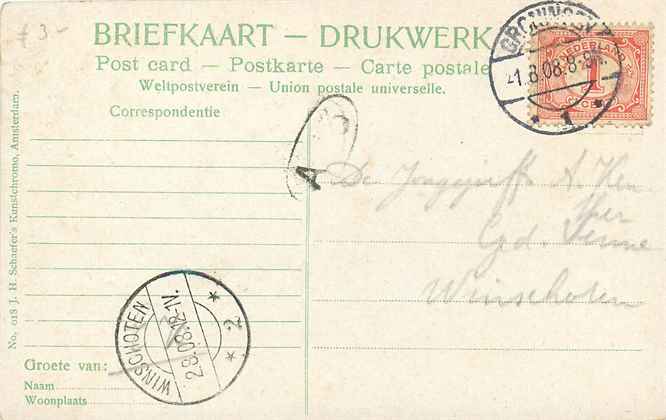 f 3-
BRIEFKAART — DRUKWERK
Post card — Postkarte — Carte postale
Weltpostverein — Union postale universelle.
Correspondentie
GRONINGEN
1.8.08.8-9
1
NEDERLAND
1
A
De A.
Gd.
Winschoten
WINSCHOTEN
2.8.08.12-1V.
2
Groete van:
Naam
Woonplaats
No. 018 J. H. Schaefer's Kunstchromo, Amsterdam.